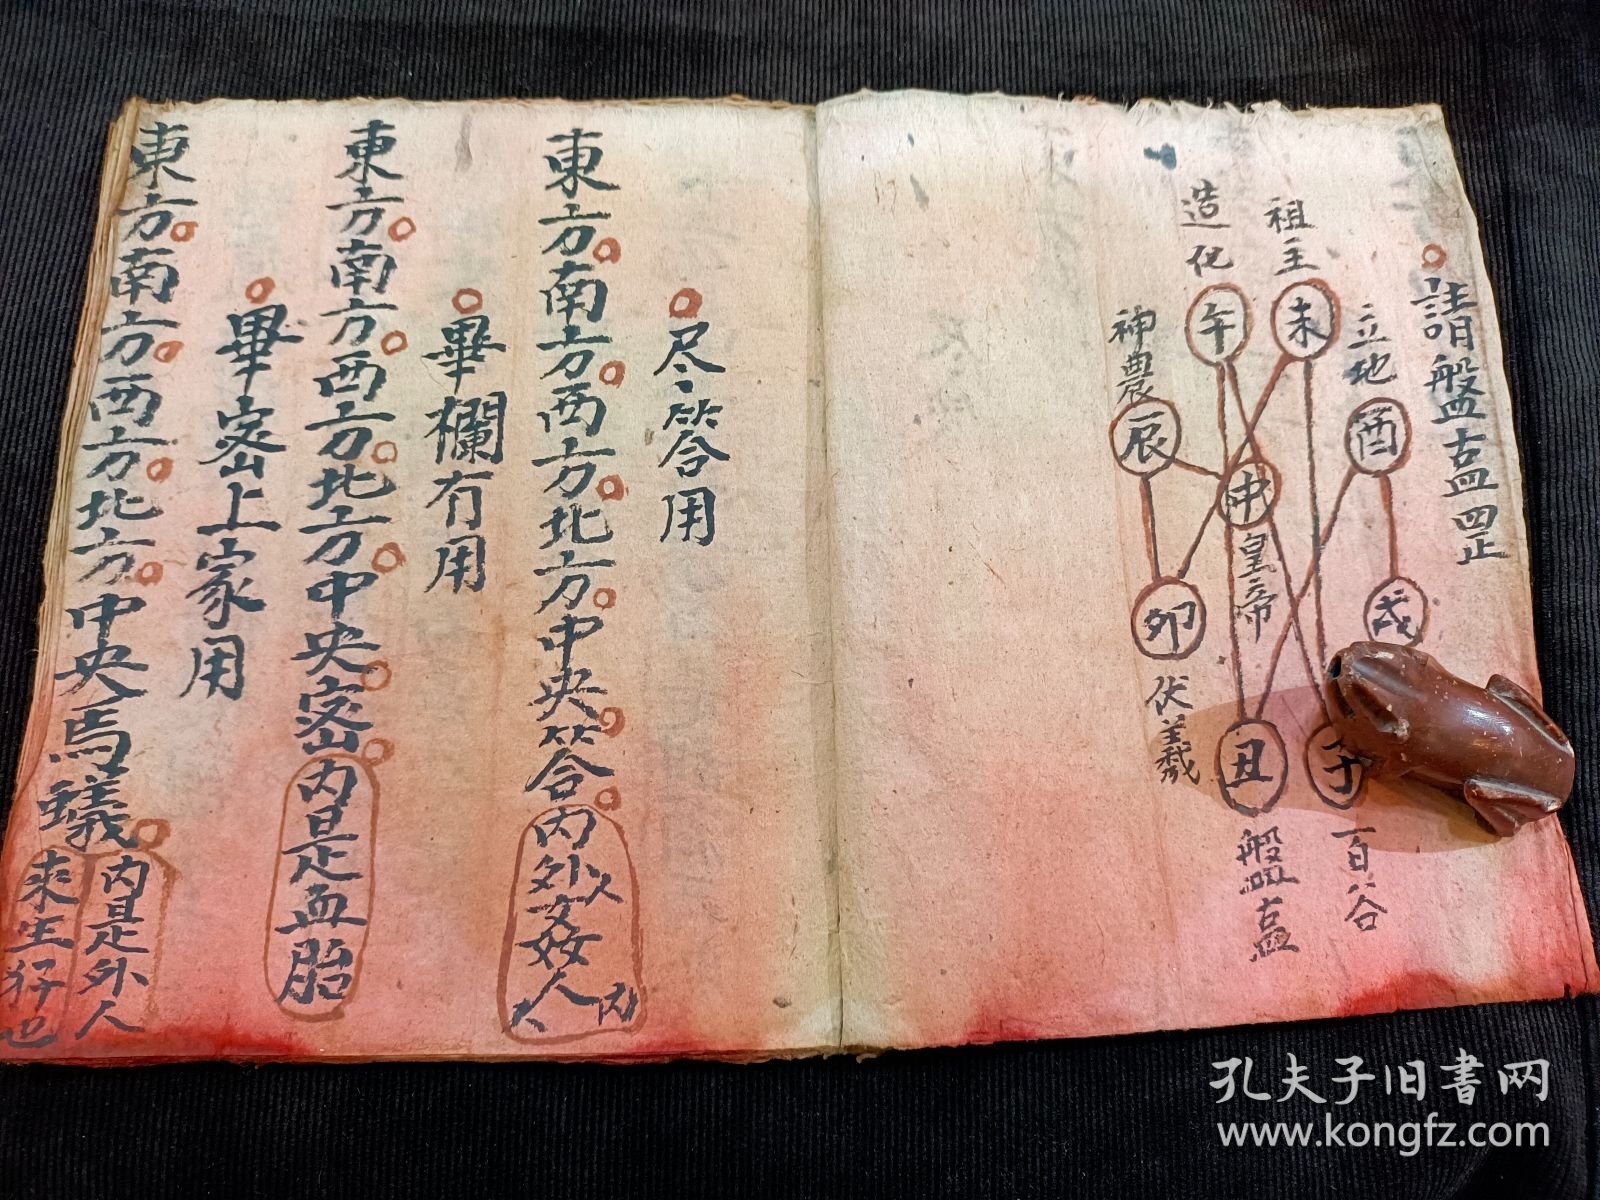 請盤古四罡
祖主
造化
立地
神農
未
午
酉
辰
申
皇帝
戌
卯
伏羲
子
丑
百谷
盤古
尽答用
東方南方西方北方中央答内外人女姦人内人
畢欄有用
東方南方西方北方中央密内是血胎
畢密上家用
東方南方西方北方中央馬蟻内是外人
來生仔也
孔夫子旧書网
www.kongfz.com